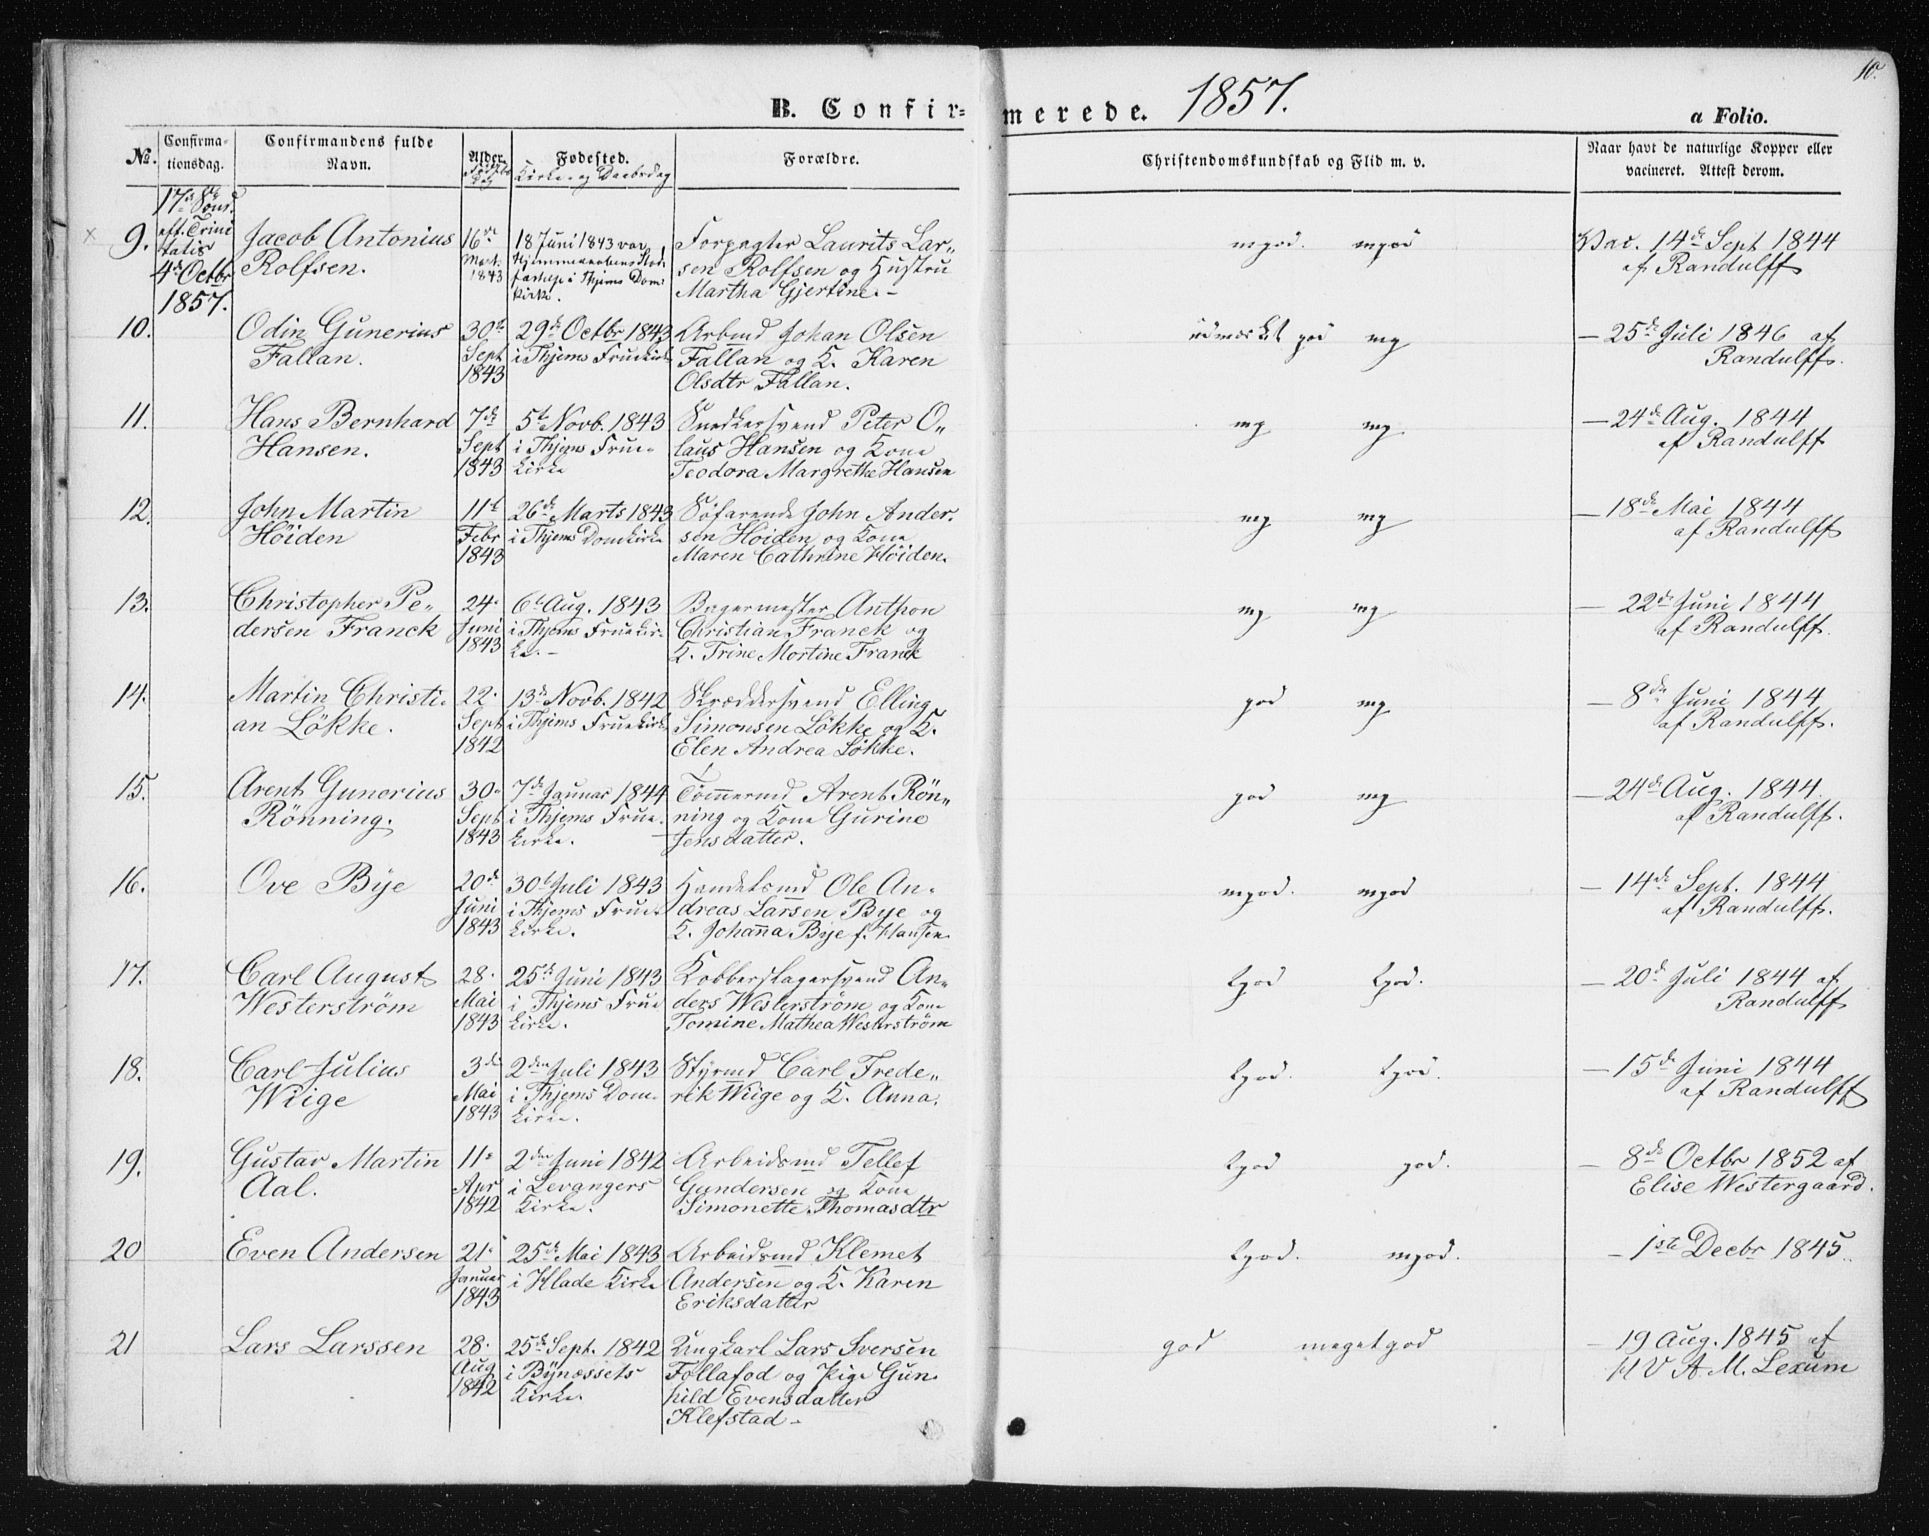 10.
B. Confir= merede. 1857. a Folio.
No. Confirma-tionsdag. Confirmandens fulde Navn. Alder. Fødested. Forældre. Christendomskundskab og Flid m. v. Naar havt de naturlige Kopper eller vacineret. Attest derom.
Kirke- og Daabsdag
17de Sønd.
eft. Trini
tatis
4de Octbr
1857.
9. Jacob Antonius 16de 18 Juni 1843 Forpagter Laurits Lar„ mgod. mgod Vac. 14de Sept 1844
Rolfsen. Mart. 1843 i Thjems Dom kirke. sen Rolfsen og Hustru af Randulff
Martha Gjertine.-
10. Odin Gunerius 30te 29de Octbr 1843 Arbmd Johan Olsen udmærket god mg - 25de Juli 1846 af
Fallan. Sept i Thjems Fruekirke Fallan og K. Karen Randulff.
1843 Olsdtr Fallan.
11. Hans Bernhard 7de 5te Novb. 1843 Snedkersvend Peter O„ mg mg - 24de Aug. 1844
Hansen. Sept i Thjems Frue- laus Hansen og Kone af Randulff
1843 kirke Teodora Margrethe Hansen
12. John Martin 11te 26de Marts 1843 Søfarende John Ander. mg mg - 18de Mai 1844
Höiden Febr i Thjems Domkirke sen Höiden og Kone af Randulff
1843 Maren Cathrine Höiden.
13. Christopher Pe„ 24. 6te Aug. 1843 Bagermester Anthon mg mg - 22de Juni 1844
dersen Franck Juni i Thjems Fruekir- Christian Franck og af Randulff.
1843 ke.- K. Trine Mortine Franck
14. Martin Christi. 22. 13de Novb. 1842 Skræddersvend Elling god mg - 8de Juni 1844
an Lökke. Sept i Thjems Fruekirke Simonsen Lökke og K. af Randulff.
1842 Elen Andrea Lökke.
15. Arent Gunerius 30. 7de Januar 1844 Tömmermd Arent Rön„ god mg - 24de Aug. 1844.
Rönning. Sept i Thjems Frue. ning og Kone Gurine af Randulff.
1843 kirke. Jensdatter.
16. Ove Bye 20de 30te Juli 1843 Handelsmd Ole An. mgod. mgod - 14de Sept. 1844
Juni i Thjems Frue- dreas Larsen Bye og af Randulff.
1843 kirke. K. Johanna Bye f. Hansen
17. Carl August 28. 25de Juni 1843 Kobberslagersvend An„ tgod tgod. - 20de Juli 1844 af
Westerström Mai i Thjems Frue ders Westerström og Kone Randulff
1843 kirke. Tomine Mathea Westerström
18. Carl Julius 3de 2den Juli 1843 Styrmd Carl Frede„ tgod. tgod. - 15de Juni 1844
Wiige Mai i Thjems Dom- rik Wiige og K. Anna. af Randulff
1843 kirke.
19. Gustav Martin 11te 2den Juni 1842 Arbeidsmd Tellef tgod god. - 8de Octbr 1852 af
Aal. Apr i Levangers Gundersen og Kone Elise Westergaard.
1842 Kirke. Simonette Thomasdtr
20 Even Andersen 21. 25de Mai 1843 Arbeidsmd Klemet tgod. mgod. - 1ste Decbr 1845.
Januar i Hlade Kirke Andersen og K. Karen
1843 Eriksdatter
21 Lars Larssen 28. 25de Sept. 1842 Ungkarl Lars Iversen god megetgod - 19 Aug. 1845 af
Aug i Bynæssets Follafod og Pige Gun. H V A. M. Lexum
1842 Kirke. hild Evensdatter
Klefstad -